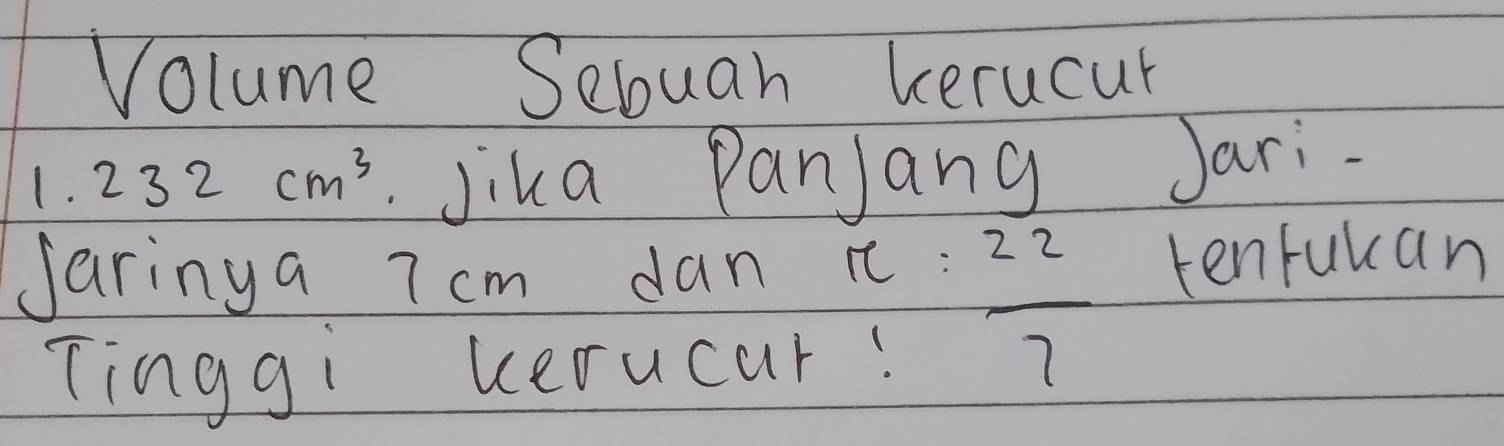 Volume Sebuah kerucut
1.232 cm³. Jika Panjang Jari-
Jarinya 7 cm dan π : 22/7 tentukan
Tinggi kerucut !